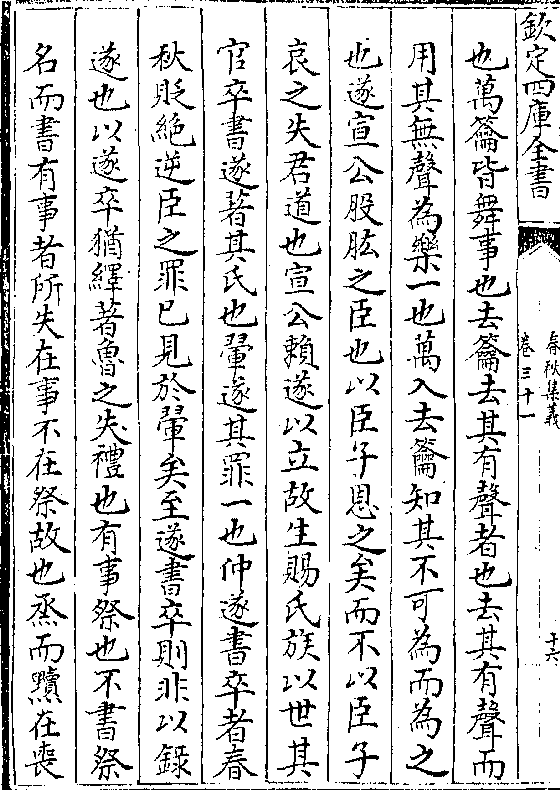 欽定四庫全書
春秋集義
卷三十一
十六
也萬籥皆舞事也去籥去其有聲者也去其有聲而
用其無聲為樂一也萬入去籥知其不可為而為之
也遂宣公股肱之臣也以臣子恩之矣而不以臣子
哀之失君道也宣公賴遂以立故生賜氏族以世其
官卒書遂著其氏也翬遂其罪一也仲遂書卒者春
秋貶絶逆臣之罪已見於翬矣至遂書卒則非以録
遂也以遂卒猶繹著魯之失禮也有事祭也不書祭
名而書有事者所失在事不在祭故也烝而黷在喪